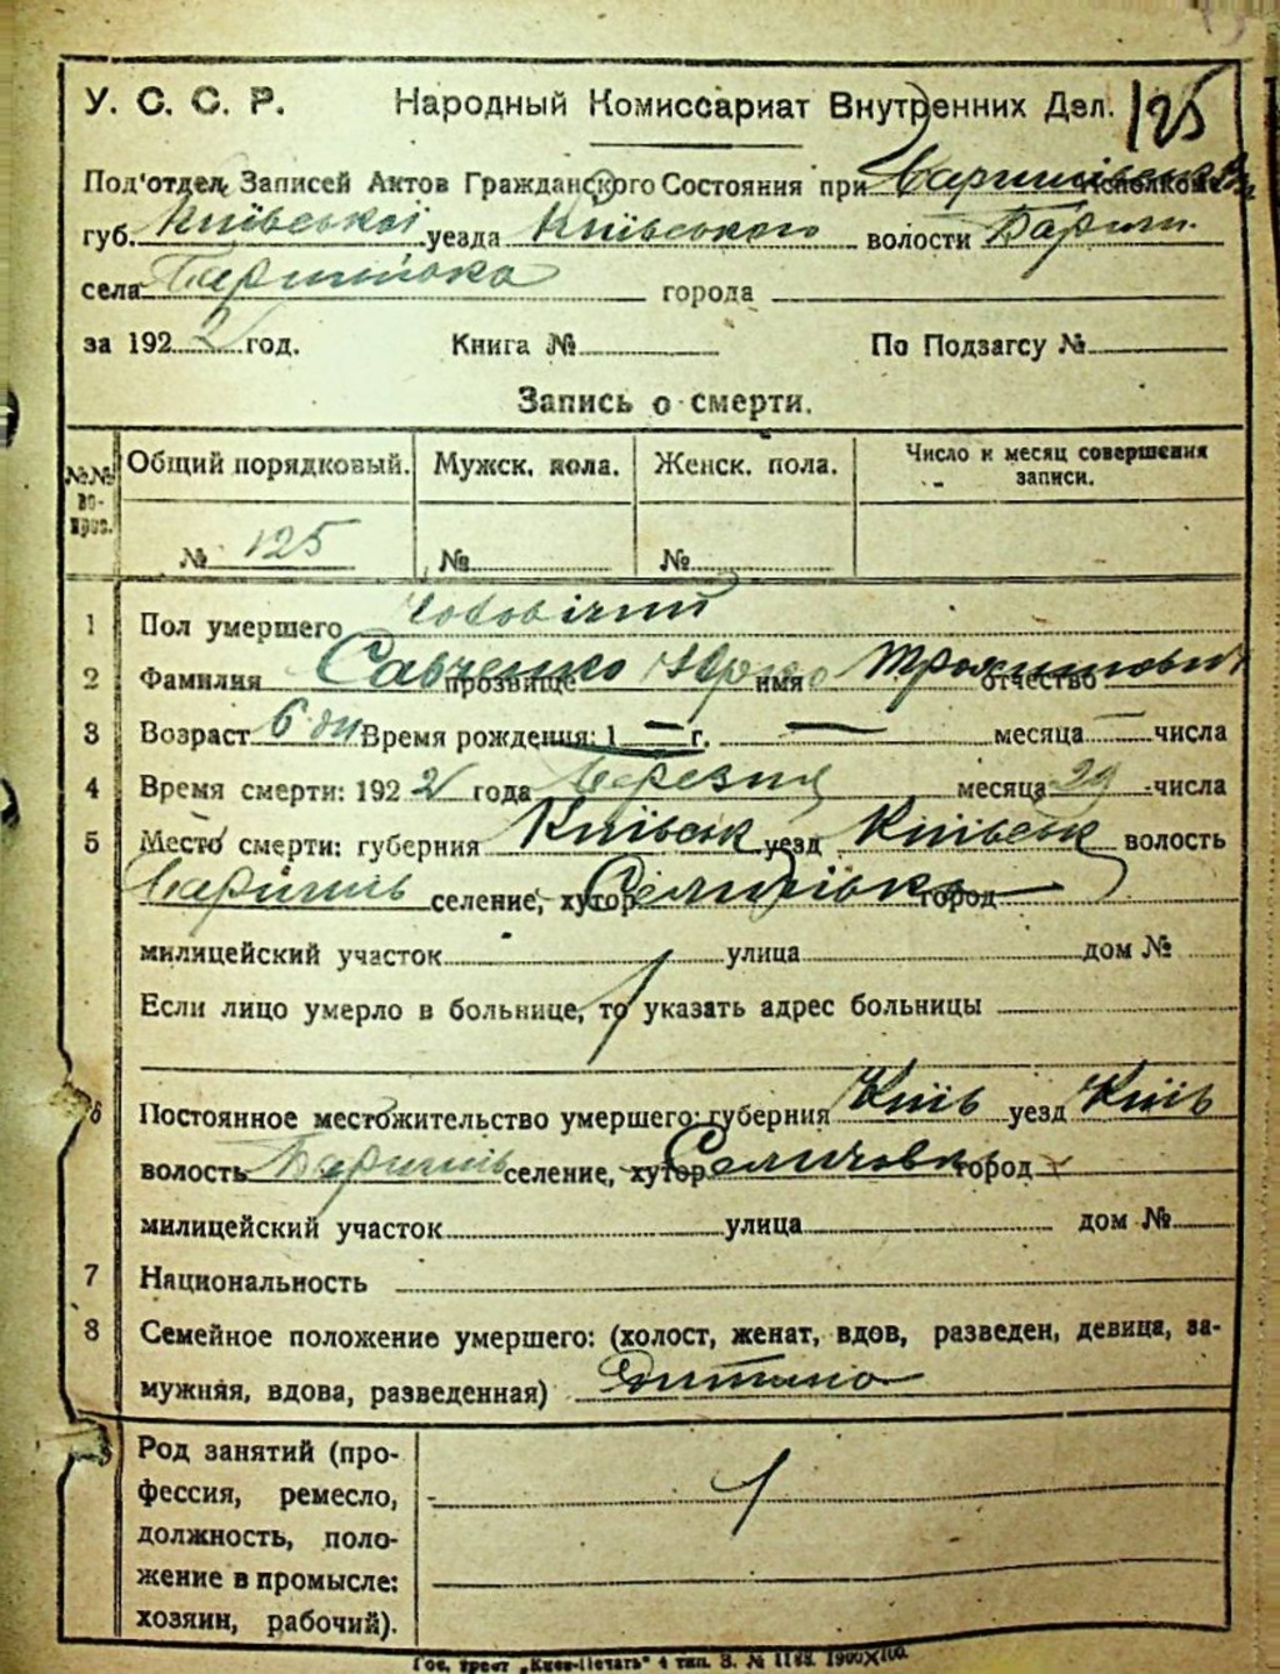 У. С. С. Р. Народный Комиссариат Внутренних Дел. 125
Под'отдел Записей Актов Гражданского Состояния при исполкоме
губ. Київської уезда Київського волости Бариш.
села Баришівка города
за 1922 год. Книга № По Подзагсу №
Запись о смерти.
№№ вопрос. Общий порядковый. Мужск. пола. Женск. пола. Число и месяц совершения записи.
№ 125 № №
1 Пол умершего Чоловічий
2 Фамилия Савченко прозвище имя отчество Трохимович
3 Возраст 6 дн Время рождения: 1 — г. — месяца — числа
4 Время смерти: 1922 года Березня месяца 29 числа
5 Место смерти: губерния Київськ уезд Київськ волость
Баришів селение, хутор Селичівка город
милицейский участок улица дом №
Если лицо умерло в больнице, то указать адрес больницы
6 Постоянное местожительство умершего: губерния Київ уезд Київ
волость Баришів селение, хутор Селичовка город
милицейский участок улица дом №
7 Национальность
8 Семейное положение умершего: (холост, женат, вдов, разведен, девица, за-
мужняя, вдова, разведенная) Дитина
Род занятий (про-
фессия, ремесло,
должность, поло-
жение в промысле:
хозяин, рабочий).
Гос. трест „Киев-Печать“ 4 тип. З. № 1188. 1900×100.